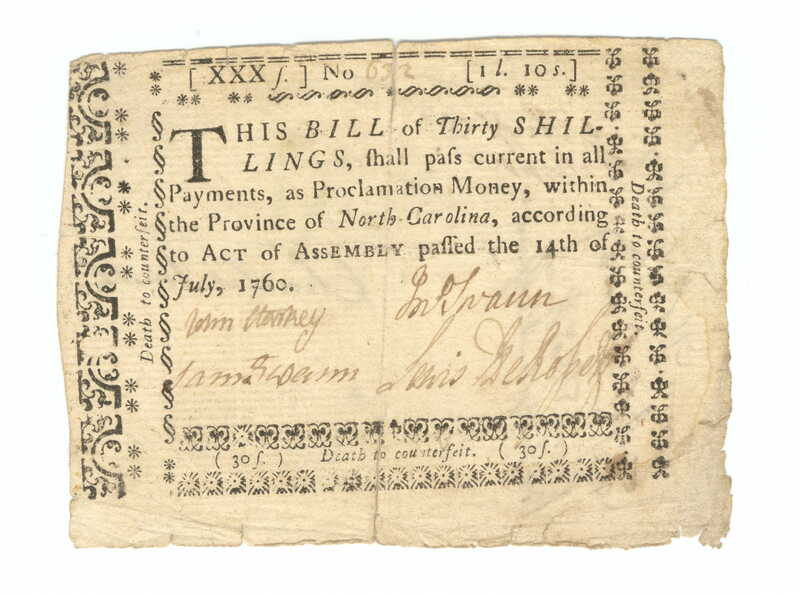 [ XXX ſ. ] No 632 [1 l. 10 s.]
THIS BILL of Thirty SHIL-
LINGS, ſhall paſs current in all
Payments, as Proclamation Money, within
the Province of North-Carolina, according
to ACT of ASSEMBLY paſſed the 14th of
July, 1760.
Jno Swann
John Starkey
Sam Swann
Lewis DeRosset
( 30 ſ. ) Death to counterfeit. ( 30 ſ. )
Death to counterfeit.
Death to counterfeit.